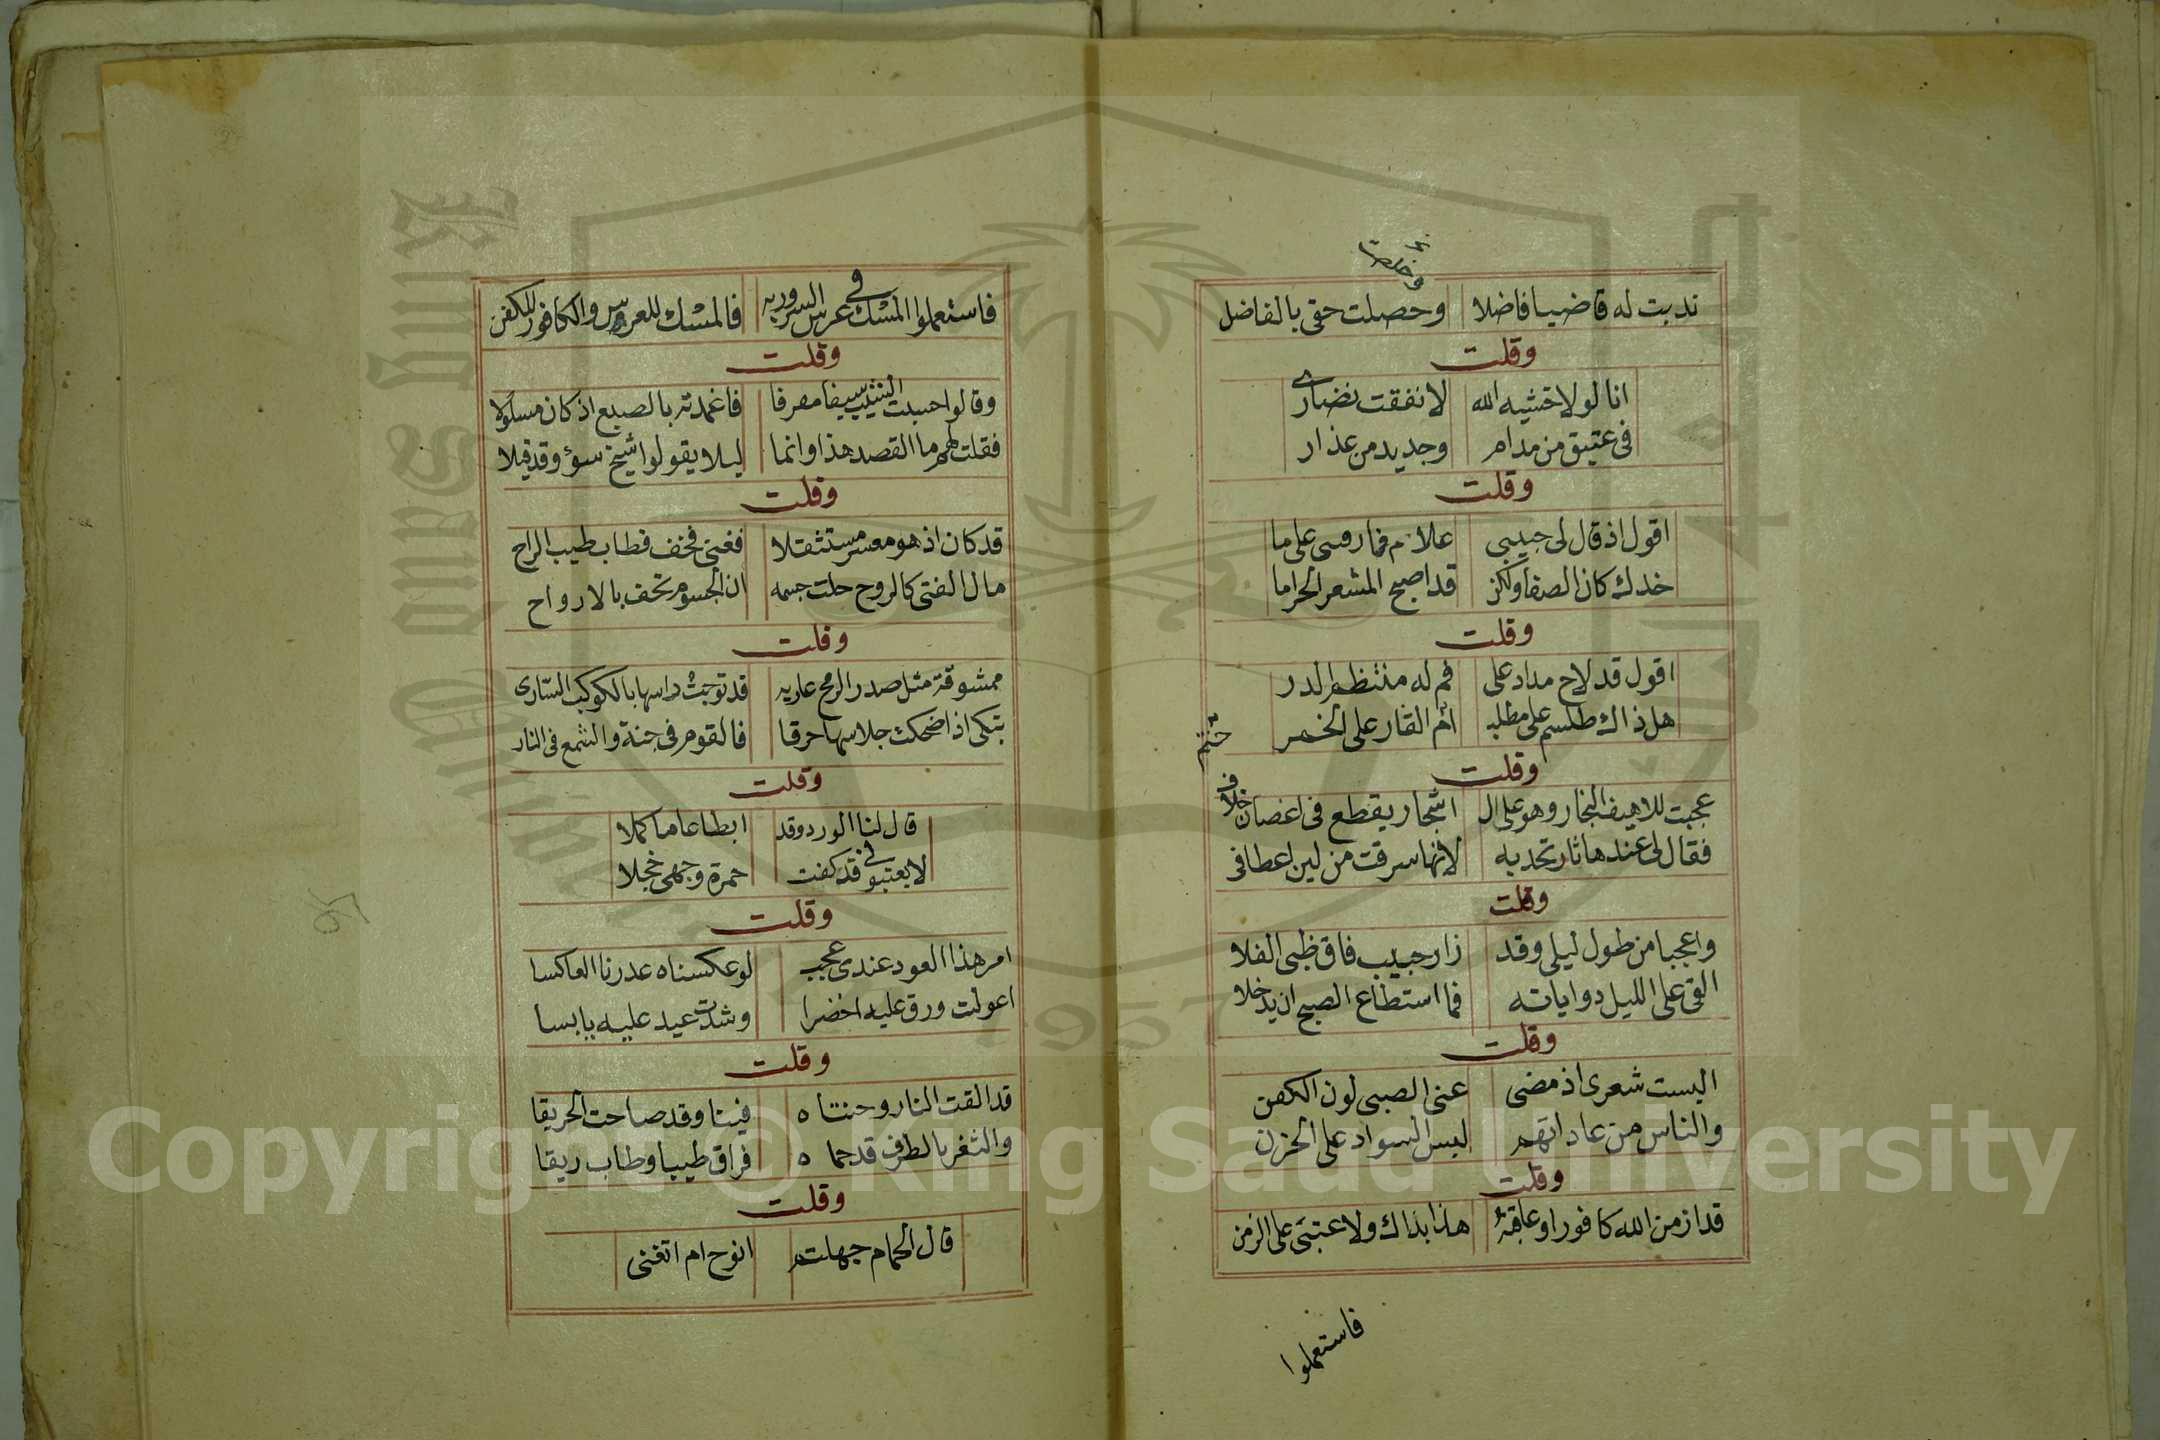 ندبت له قاضيا فاضلا وحصلت حقى بالفاضل
وقلت
انا لولا خشية الله لانفقت نضارى
فى عتيق من مدام وجديد من عذار
وقلت
اقول اذ قال لى حبيبى علام فمارسى على ما
خدك كان الصفا ولكن قد اصبح المشعر الحراما
وقلت
اقول قد لاح مداد على فم له منتظم الدر
هل ذاك طلسم على مطلب ام القار على الخمر
ختم
وقلت
عجبت للاهيف النجار وهو على ال اشجار يقطع فى اغصان خلاف
فقال لى عندها ثار تحديه لانها سرقت من لين اعطافى
وقلت
واعجبا من طول ليلى وقد زار حبيب فاق ظبى الفلا
القى على الليل دواياته فما استطاع الصبح ان يدخلا
وقلت
البست شعرى اذ مضى عنى الصبى لون الكفن
والناس من عاداتهم لبس السواد على الحزن
وقلت
قد ازمن الله كافورا وعاقبة هذا بذاك ولا عتبى على الزمن
فاستعملوا
فاستعملوا المسك فى عرس السرور به فالمسك للعروس والكافور للكفن
وقلت
وقالوا حسبت الشيب سيفا مصرفا فاغمدته بالصبغ اذ كان مسلولا
فقلت لهم ما القصد هذا وانما ليلا يقولوا شيخ سوء وقد قيلا
وقلت
قد كان اذ هو معسر مستثقلا فغنى فخف فطاب طيب الراح
مال الفتى كالروح حلت جسمه ان الجسوم تخف بالارواح
وقلت
ممشوقة مثل صدر الرمح عاريه قد توجت راسها بالكوكب السارى
تبكى اذا ضحكت جلاسها حرقا فالقوم فى جنة والشمع فى النار
وقلت
قال لنا الورد وقد ابطا عاما كملا
لا يعتبو فى قد كفت حمرة وجهى خجلا
وقلت
امر هذا العود عندى عجب لو عكسناه عدرنا العاكسا
اعولت ورق عليه اخضرا وشدت عيد عليه يابسا
وقلت
قد القت النار وجنتاه فينا وقد صاحت الحريقا
والثغر بالطرف قد حماه فراق طيبا وطاب ريقا
وقلت
قال الحمام جهلتم انوح ام اتغنى
Copyright © King Saud University
King Saud University
1957